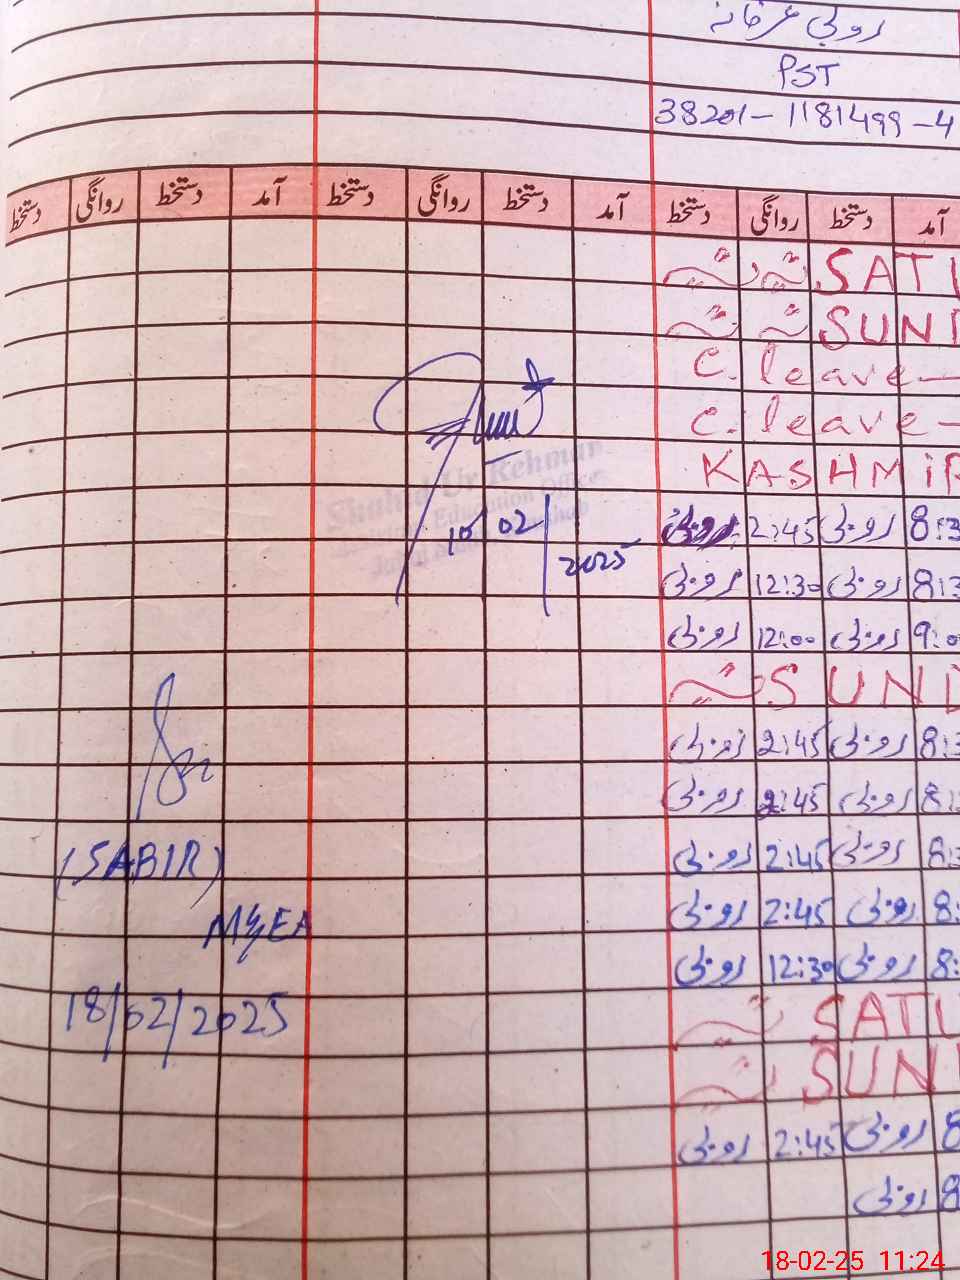 روبی عرفانہ
PST
38201-1181499-4
آمد دستخط روانگی دستخط آمد دستخط روانگی دستخط آمد دستخط روانگی دستخط
SATU
SUND
C. leave-
C. leave-
KASHMIR
8:3 روبی 2:45 روبی
8:3 روبی 12:30 روبی
9:0 روبی 12:00 روبی
SUND
8:3 روبی 2:45 روبی
8:3 روبی 2:45 روبی
8:3 روبی 2:45 روبی
8: روبی 2:45 روبی
8: روبی 12:30 روبی
SATU
SUN
8 روبی 2:45 روبی
8 روبی
Shahid Ur Rehman
Education Officer
10/02/2025
(SABIR)
M&EA
18/02/2025
18-02-25 11:24